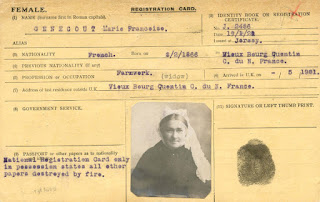 FEMALE.
REGISTRATION CARD.
(1) NAME (Surname first in Roman capitals).
GENEGOUT Marie Francoise.
ALIAS
(2) IDENTITY BOOK or REGISTRATION CERTIFICATE.
Issued at Jersey.
(3) NATIONALITY French. Born on in Vieux Bourg Quentin
C. du N. France.
(4) PREVIOUS NATIONALITY (if any)
(5) PROFESSION or OCCUPATION Farmwork. (widow)
(6) Arrived in U.K. on - 5 1921.
(7) Address of last residence outside U.K. Vieux Bourg Quentin C. du N. France.
(8) GOVERNMENT SERVICE.
(11) SIGNATURE OR LEFT THUMB PRINT.
(9) PASSPORT or other papers as to nationality
National Registration Card only
in possession states all other
papers destroyed by fire.